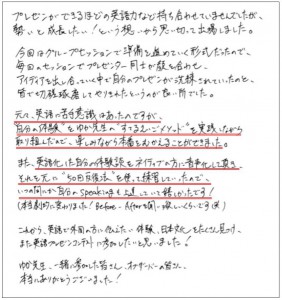 プレゼンができるほどの英語力など持ち合わせていませんでしたが、
勢いと成長したい！という想いから思い切って出場しました。
今回はグループセッションで準備を進めていく形式だったので、
毎回のセッションでプレゼンター同士が顔を合わせ、
アイディアを出し合っていく中で自分のプレゼンが洗練されていったと、
皆で切磋琢磨してやりきれたというのが良い所でした。
元々、英語の苦手意識はあったのですが、
"自分の体験"をゆか先生の"するるんごメソッド"を実践しながら
取り組んだので、楽しみながら本番をむかえることができました。
また、英語化した自分の体験談をネイティブの方に音声化して頂き、
それを元に"50回反復法"を使って練習していたので、
いつの間にか自分のSpeaking も上達していて嬉しかったです！
(本当劇的に変わりました！Before・Afterを聞いて欲しいくらいです(笑)
これから、英語で外国の方に伝えたい体験、日本文化をたくさん見つけ、
また英語プレゼンコンテストに参加したいと思いました！
ゆか先生、一緒に参加した皆さん、オーディエンスの皆さん、
本当にありがとうございました！